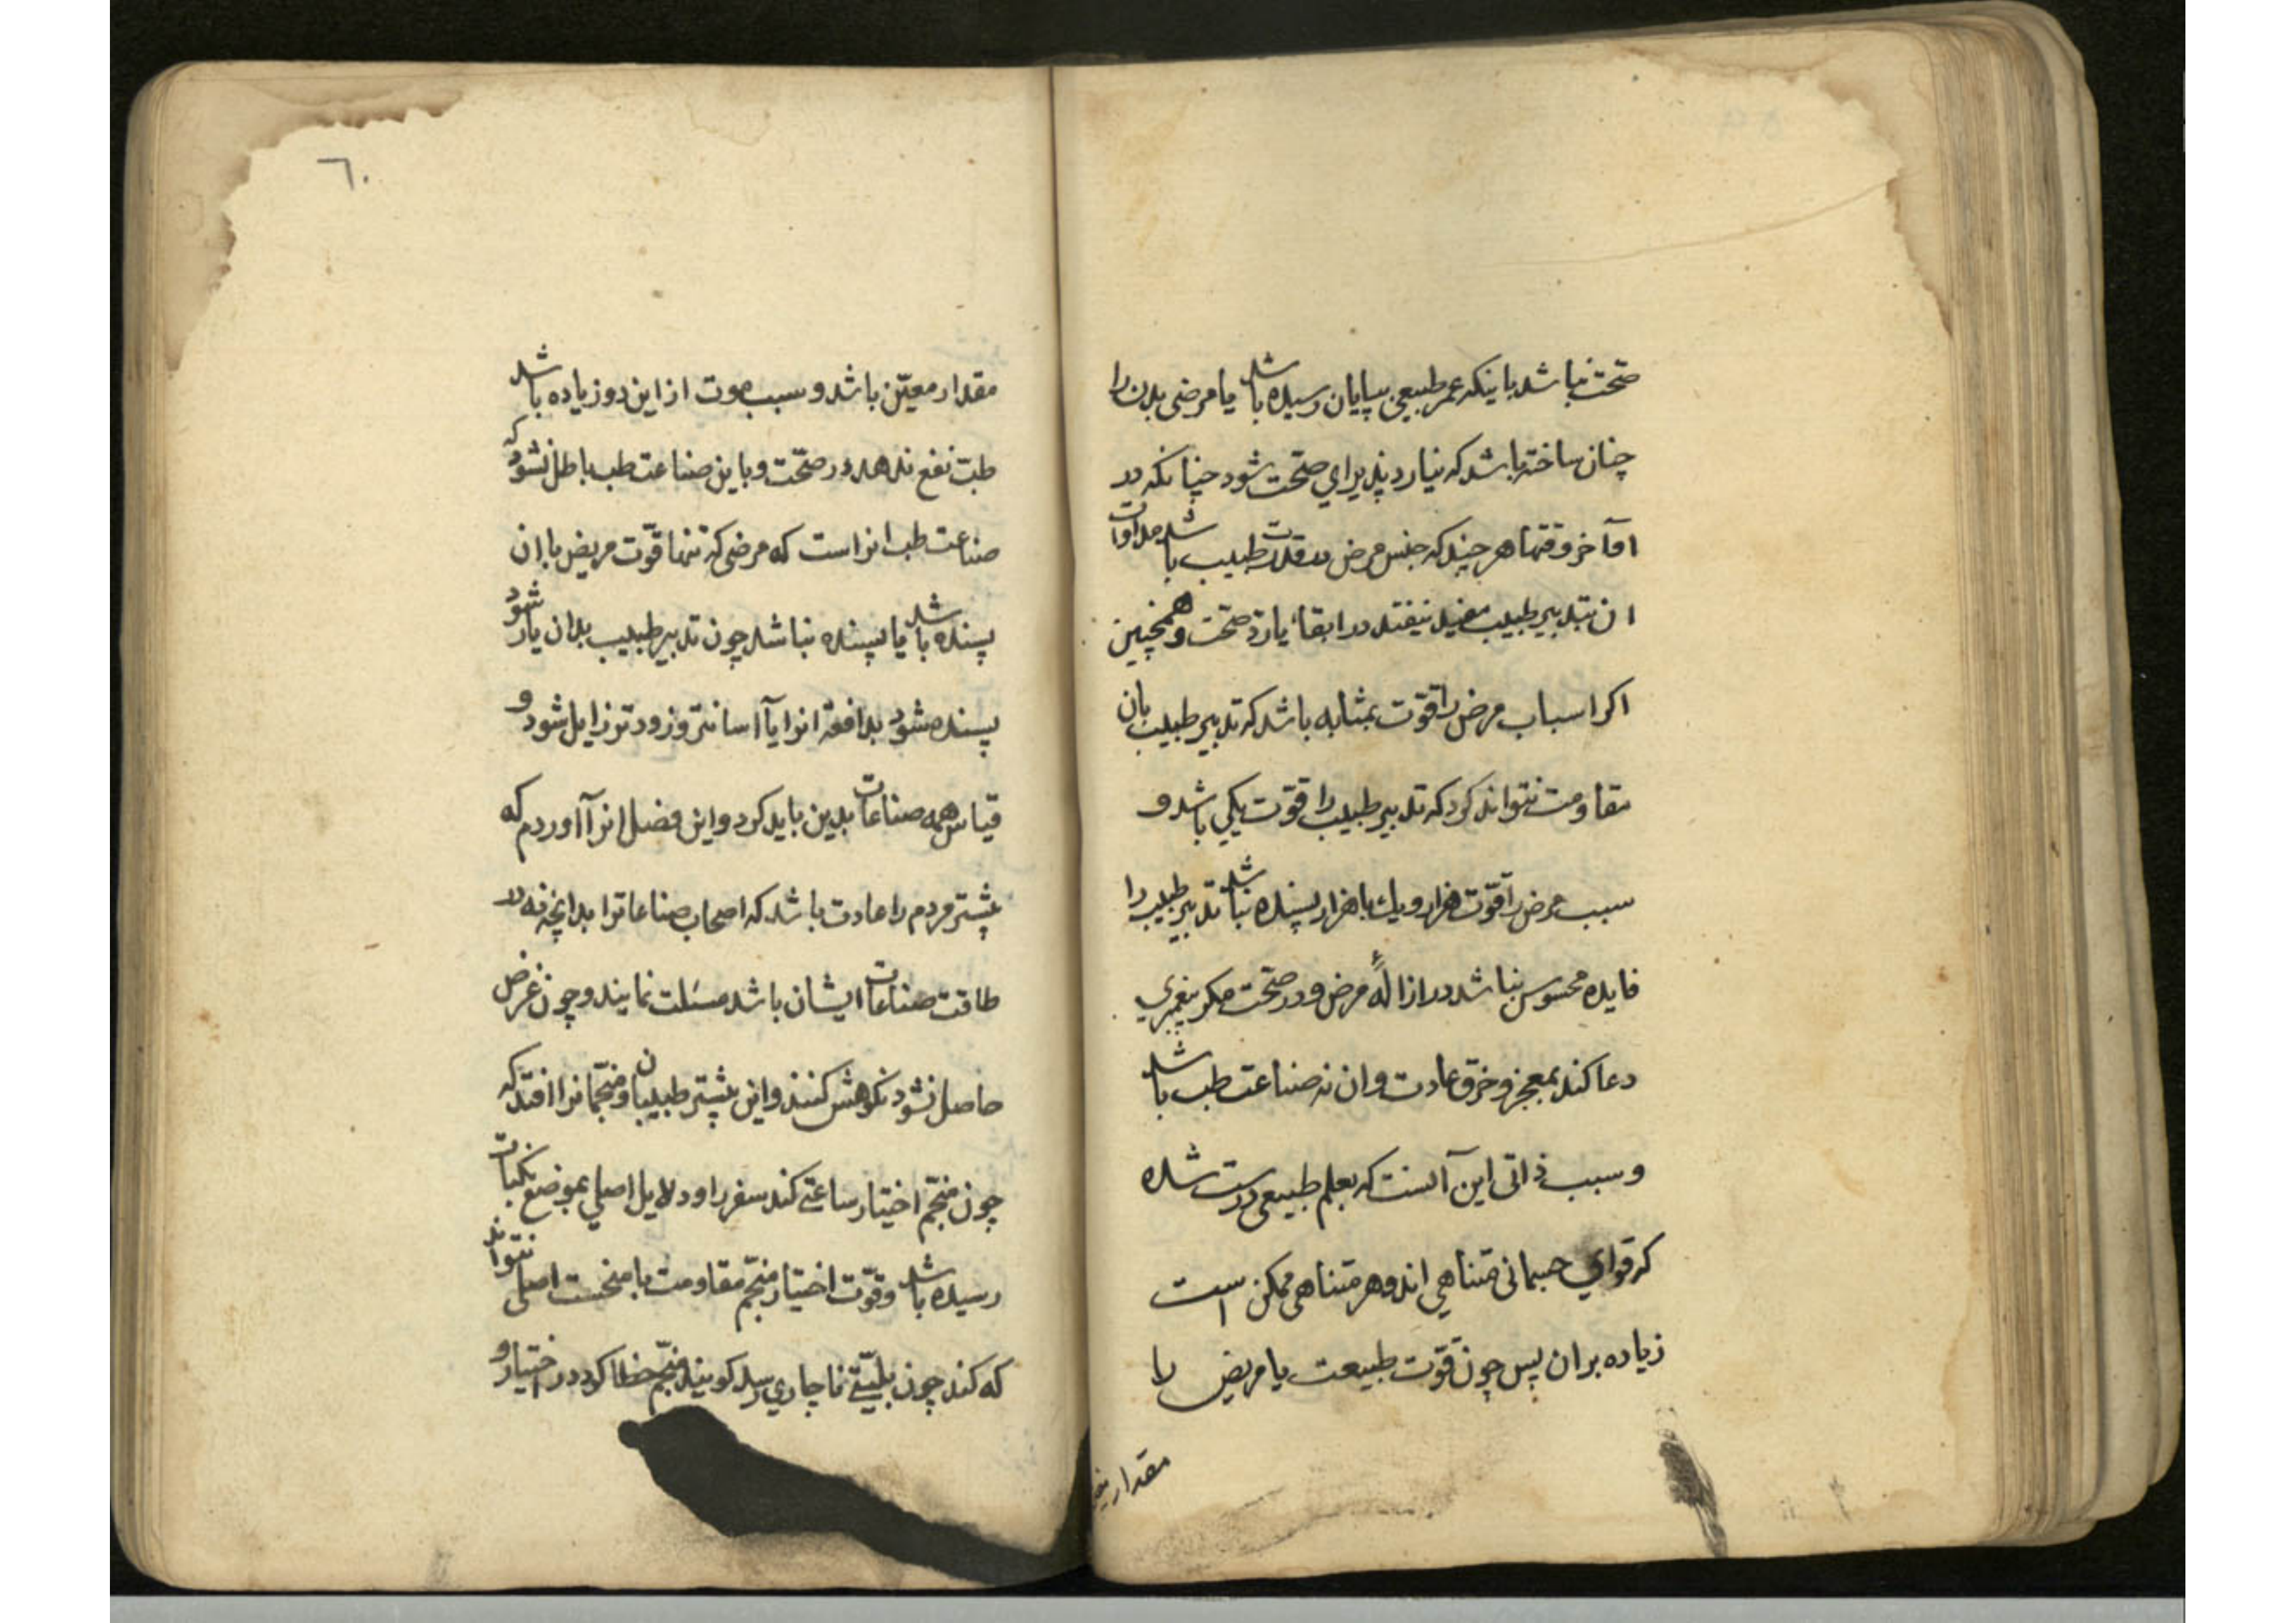 صحت نباشد باینکه عمر طبیعی بپایان رسیده باشد یا مرضی بدن را
چنان ساخته باشد که نیارد پذیرای صحت شود چنانکه در
آخر وقتها هر چند که جنس مرض در قدرت طبیب باشد مداوات
ان بتدبیر طبیب مفید نیفتد در ابقاء یا رد صحت و همچنین
اکر اسباب مرض را قوت بمثابه باشد که تدبیر طبیب بان
مقاومت نتواند کرد که تدبیر طبیب را قوت یکی باشد و
سبب مرض را قوت هزار و یك با هزار پسنده نباشد تدبیر طبیب را
فایده محسوس نباشد در ازالهٔ مرض و در صحت مکر پیغمبری
دعا کند بمعجز و خرق عادت و ان نه صناعت طب باشد
و سبب ذاتی این آنست که بعلم طبیعی درست شده
که قوای جسمانی متناهی اند و هر متناهی ممکن است
زیاده بران پس چون قوت طبیعت یا مریض را
مقدار
٦٠
مقدار معیّن باشد و سبب موت از این دو زیاده باشد
طبّ نفع ندهد در صحّت و باین صناعت طب باطل نشود که
صناعت طب انراست که مرضی که تنها قوّت مریض با ان
پسنده باشد یا پسنده نباشد چون تدبیر طبیب بدان یار شود
پسنده شود بدافعهٔ انرا یا آسانتر و زودتر زایل شود و
قیاس همه صناعات بدین باید کرد و این فصل انرا آوردم که
بیشتر مردم را عادت باشد که اصحاب صناعاترا بدانچه نه در
طاقت صناعات ایشان باشد مسئلت نمایند و چون غرض
حاصل نشود نکوهش کنند و این بیشتر طبیبان و منجّمانرا افتد که
چون منجّم اختیار ساعتی کند سفر را و دلایل اصلی بموضع نکبات
رسیده باشد و قوّت اختیار منجّم مقاومت با منحست اصلی نتواند
که کند چون بلیّتی ناچاری رسد کویند منجّم خطا کرد در اختیار و